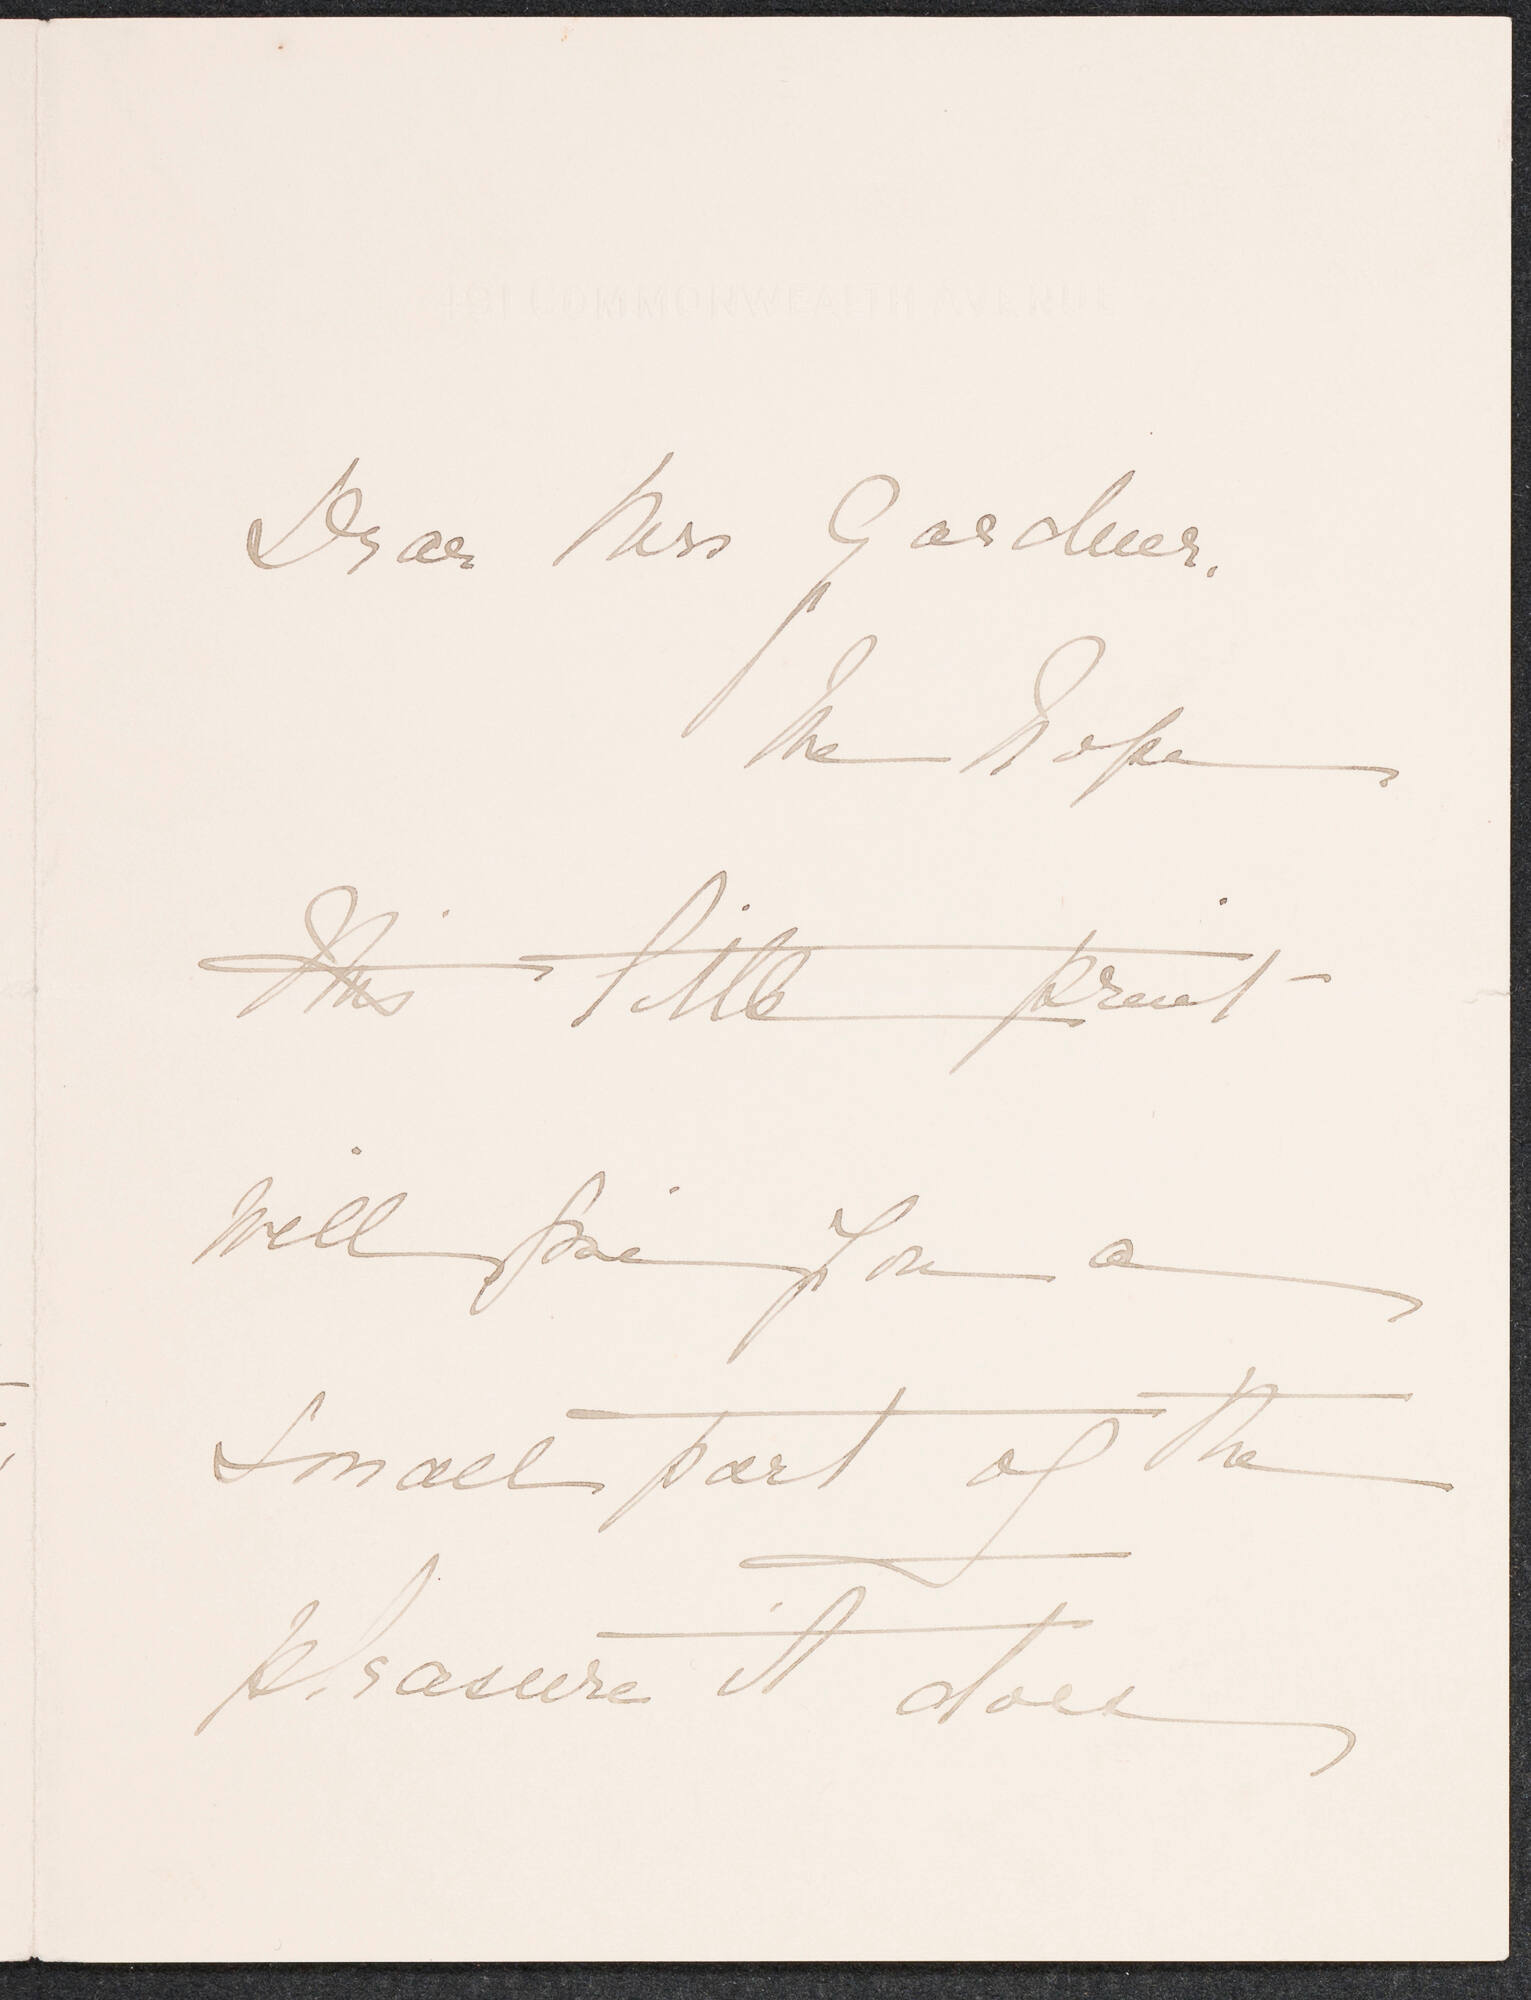 191 COMMONWEALTH AVENUE
Dear Mrs Gardner.
We hope
this little print
will give you a
small part of the
pleasure it does